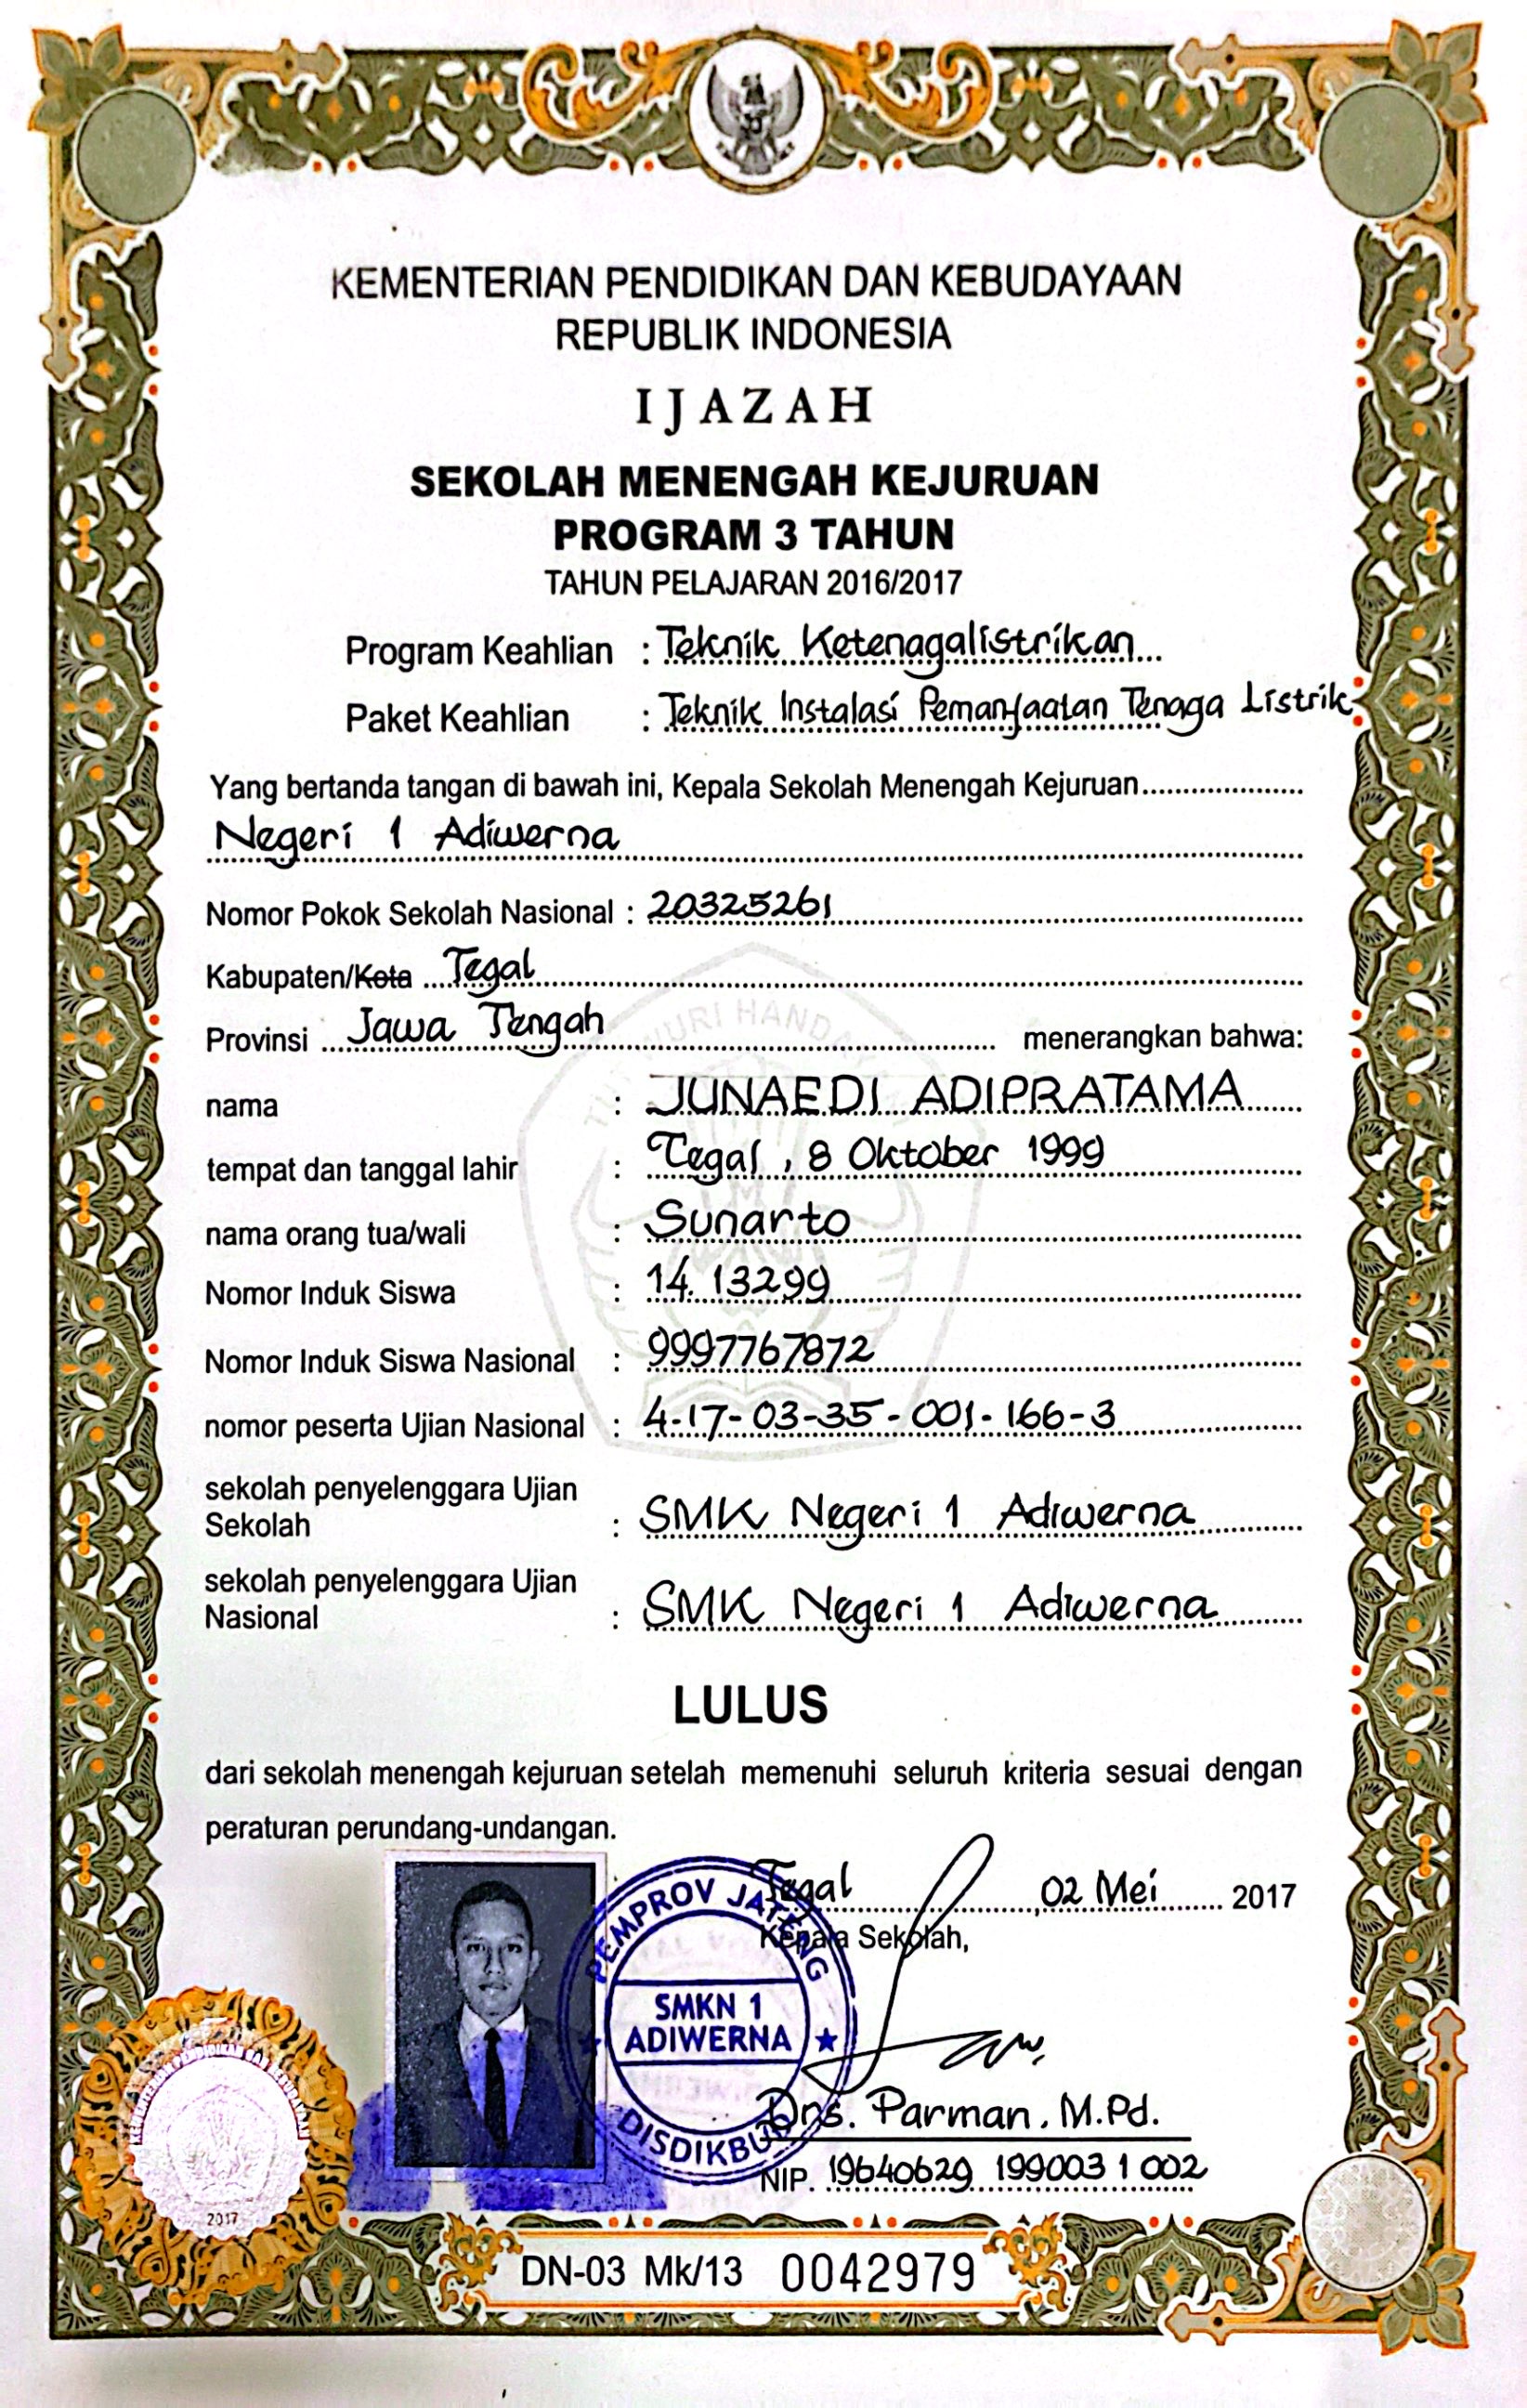 KEMENTERIAN PENDIDIKAN DAN KEBUDAYAAN
REPUBLIK INDONESIA
IJAZAH
SEKOLAH MENENGAH KEJURUAN
PROGRAM 3 TAHUN
TAHUN PELAJARAN 2016/2017
Program Keahlian : Teknik Ketenagalistrikan
Paket Keahlian : Teknik Instalasi Pemanfaatan Tenaga Listrik
Yang bertanda tangan di bawah ini, Kepala Sekolah Menengah Kejuruan
Negeri 1 Adiwerna
Nomor Pokok Sekolah Nasional : 20325261
Kabupaten/Kota Tegal
Provinsi Jawa Tengah menerangkan bahwa:
nama : JUNAEDI ADIPRATAMA
tempat dan tanggal lahir : Tegal, 8 Oktober 1999
nama orang tua/wali : Sunarto
Nomor Induk Siswa : 14. 13299
Nomor Induk Siswa Nasional : 9997767872
nomor peserta Ujian Nasional : 4-17-03-35-001-166-3
sekolah penyelenggara Ujian
Sekolah : SMK Negeri 1 Adiwerna
sekolah penyelenggara Ujian
Nasional : SMK Negeri 1 Adiwerna
LULUS
dari sekolah menengah kejuruan setelah memenuhi seluruh kriteria sesuai dengan
peraturan perundang-undangan.
Tegal, 02 Mei 2017
Kepala Sekolah,
PEMPROV JATENG
SMKN 1
ADIWERNA
DISDIKBUD
Drs. Parman, M.Pd.
NIP. 19640629 199003 1 002
KEMENTERIAN PENDIDIKAN DAN KEBUDAYAAN
2017
DN-03 Mk/13 0042979